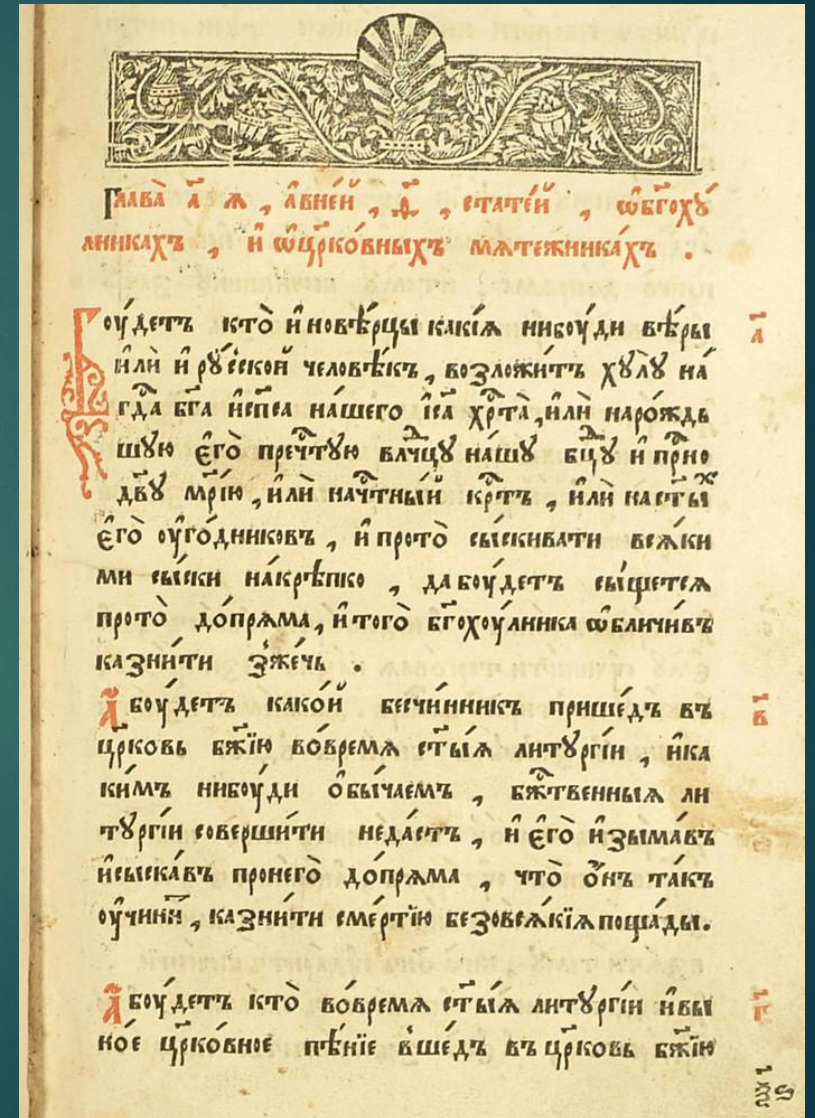 Глава̀ а҃ я , а҆вне́й , ѳ҃ , стате́й , ѡ҆бг҃охꙋ́
лникахъ , и҆ ѡ҆цр҃ко́вныхъ мѧте́жникахъ .
Боу́детъ кто̀ и҆новѣ́рцы какі́ѧ нибоу́ди вѣ́ры а҃
и҆лѝ и҆ рꙋ́сской человѣ́къ , возложи́тъ хꙋлꙋ̀ на́
гдⷭ҇а бг҃а и҆сп҃са на́шего і҆са хрⷭ҇та̀ , и҆лѝ наро́ждь
шую є҆го̀ пречⷭ҇тую влⷣчцꙋ на́шꙋ бцⷣꙋ и҆ прⷭ҇но
дв҃ꙋ мр҃і́ю , и҆лѝ начⷭ҇тны́й крⷭ҇тъ , и҆лѝ насты҃ⷯ
є҆го̀ оу҆го́дниковъ , и҆ прото̀ сы́скивати всѧ́ки
ми сы́ски на́крѣпко , да боу́детъ сы́щетсѧ
прото̀ до́прѧма , и҆ того̀ бг҃охоу́лника ѡ҆бличи́въ
казни́ти зже́чь .
А҆ боу́детъ како́й бесчи́нникъ прише́дъ въ в҃
цр҃ковь бж҃їю во́времѧ ст҃ы́ѧ литꙋргі́и , и҆ка
ки́мъ нибоу́ди ѻ҆бы́чаемъ , бжⷭ҇твенныѧ ли
тꙋргі́и соверши́ти неда́стъ , и҆ є҆го̀ и҆зыма́въ
и҆сыска́въ пронего̀ до́прѧма , что̀ ѻ҆́нъ та́къ
оу҆чини́тъ , казни́ти сме́ртїю безовсѧ́кїѧ поща́ды .
А҆ боу́детъ кто̀ во́времѧ ст҃ы́ѧ литꙋргі́и и҆вы г҃
но́е цр҃ко́вное пѣ́нїе вше́дъ въ цр҃ковь бж҃їю